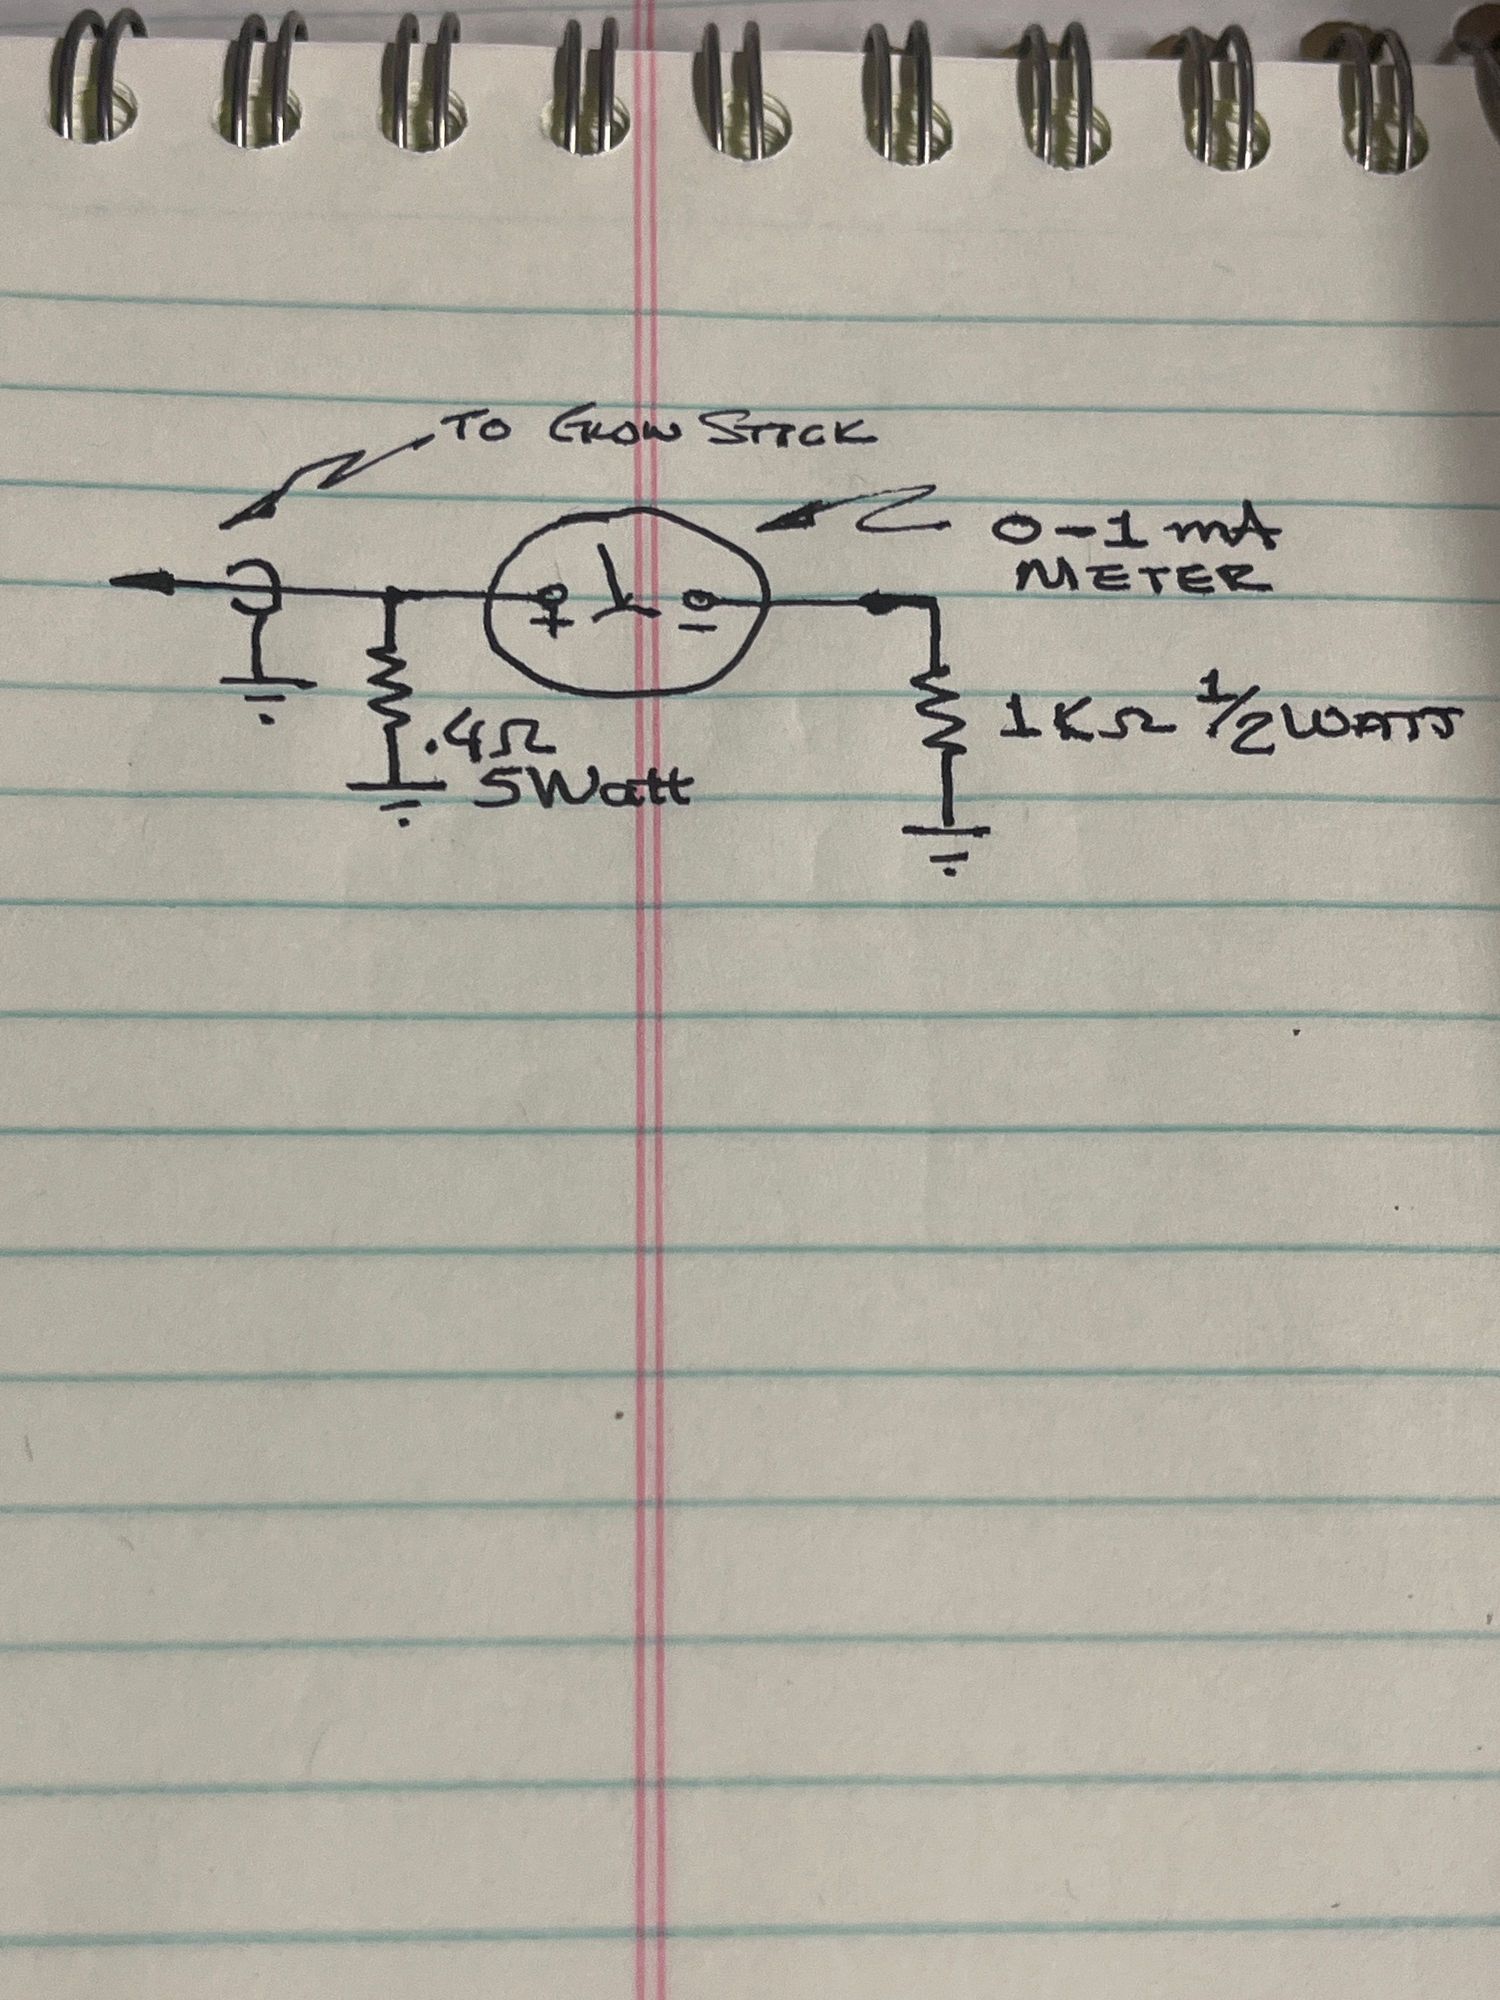 TO GLOW STICK
0-1 mA
METER
+
-
.4Ω
5Watt
1KΩ 1/2 WATT